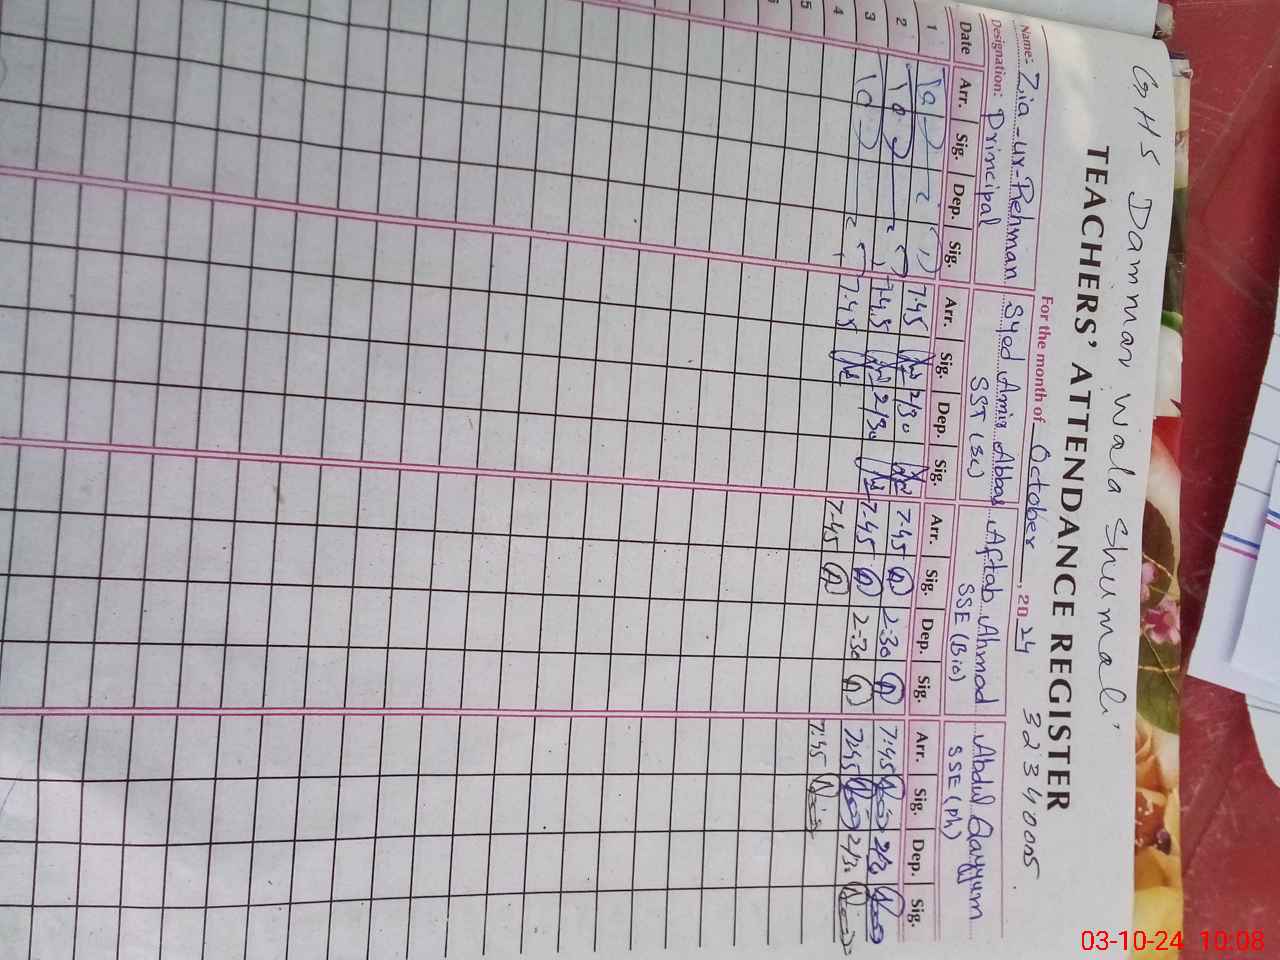 GHS Damman Wala Shumali
TEACHERS' ATTENDANCE REGISTER
32340005
For the month of October, 2024
Name: Zia-ur-Rehman Syed Amir Abbas Aftab Ahmad Abdul Qayyum
Designation: Principal SST (Sc) SSE (Bio) SSE (Ph)
Date Arr. Sig. Dep. Sig. Arr. Sig. Dep. Sig. Arr. Sig. Dep. Sig. Arr. Sig. Dep. Sig.
1 7.45 2/30 7.45 2-30 7:45
2 7.45 2/30 7.45 2-30 7:45
3 7.45 7.45 7:45
4
5
03-10-24 10:08